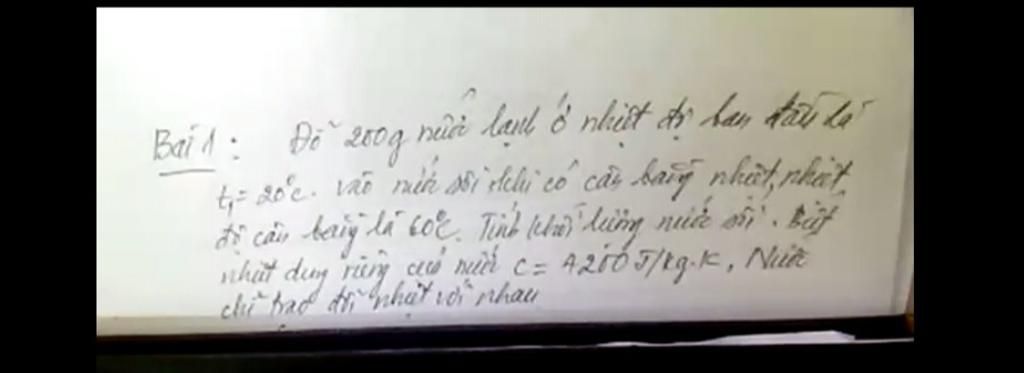 Bài 1: Đổ 200g nước lạnh ở nhiệt độ ban đầu là
t₁ = 20°C. vào nước sôi khi có cân bằng nhiệt, nhiệt
độ cân bằng là 60°C. Tính khối lượng nước sôi. Biết
nhiệt dung riêng của nước C = 4200J/kg.K, Nước
chỉ trao đổi nhiệt với nhau